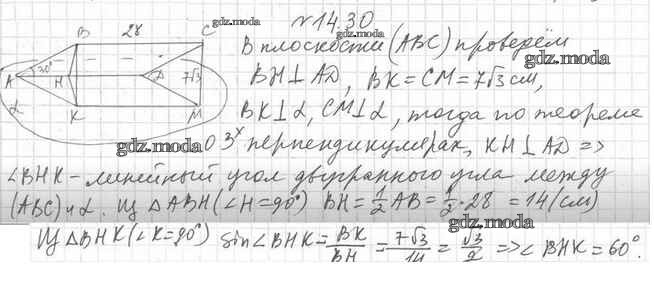 №14.30
gdz.moda
B 28 C
gdz.moda
В плоскости (ABC) проведём
A 30° H D 7√3
BH⊥AD, BK=CM=7√3 см,
gdz.moda
α K M
BK⊥α, CM⊥α, тогда по теореме
gdz.moda
gdz.moda
о 3х перпендикулярах, KH⊥AD =>
gdz.moda
∠BHK - линейный угол двугранного угла между
(ABC) и α. Из △ABH (∠H=90°) BH=1/2 AB=1/2·28 =14(см)
gdz.moda
Из △BHK (∠K=90°) sin∠BHK=BK/BH=7√3/14=√3/2 =>∠BHK=60°.
gdz.moda